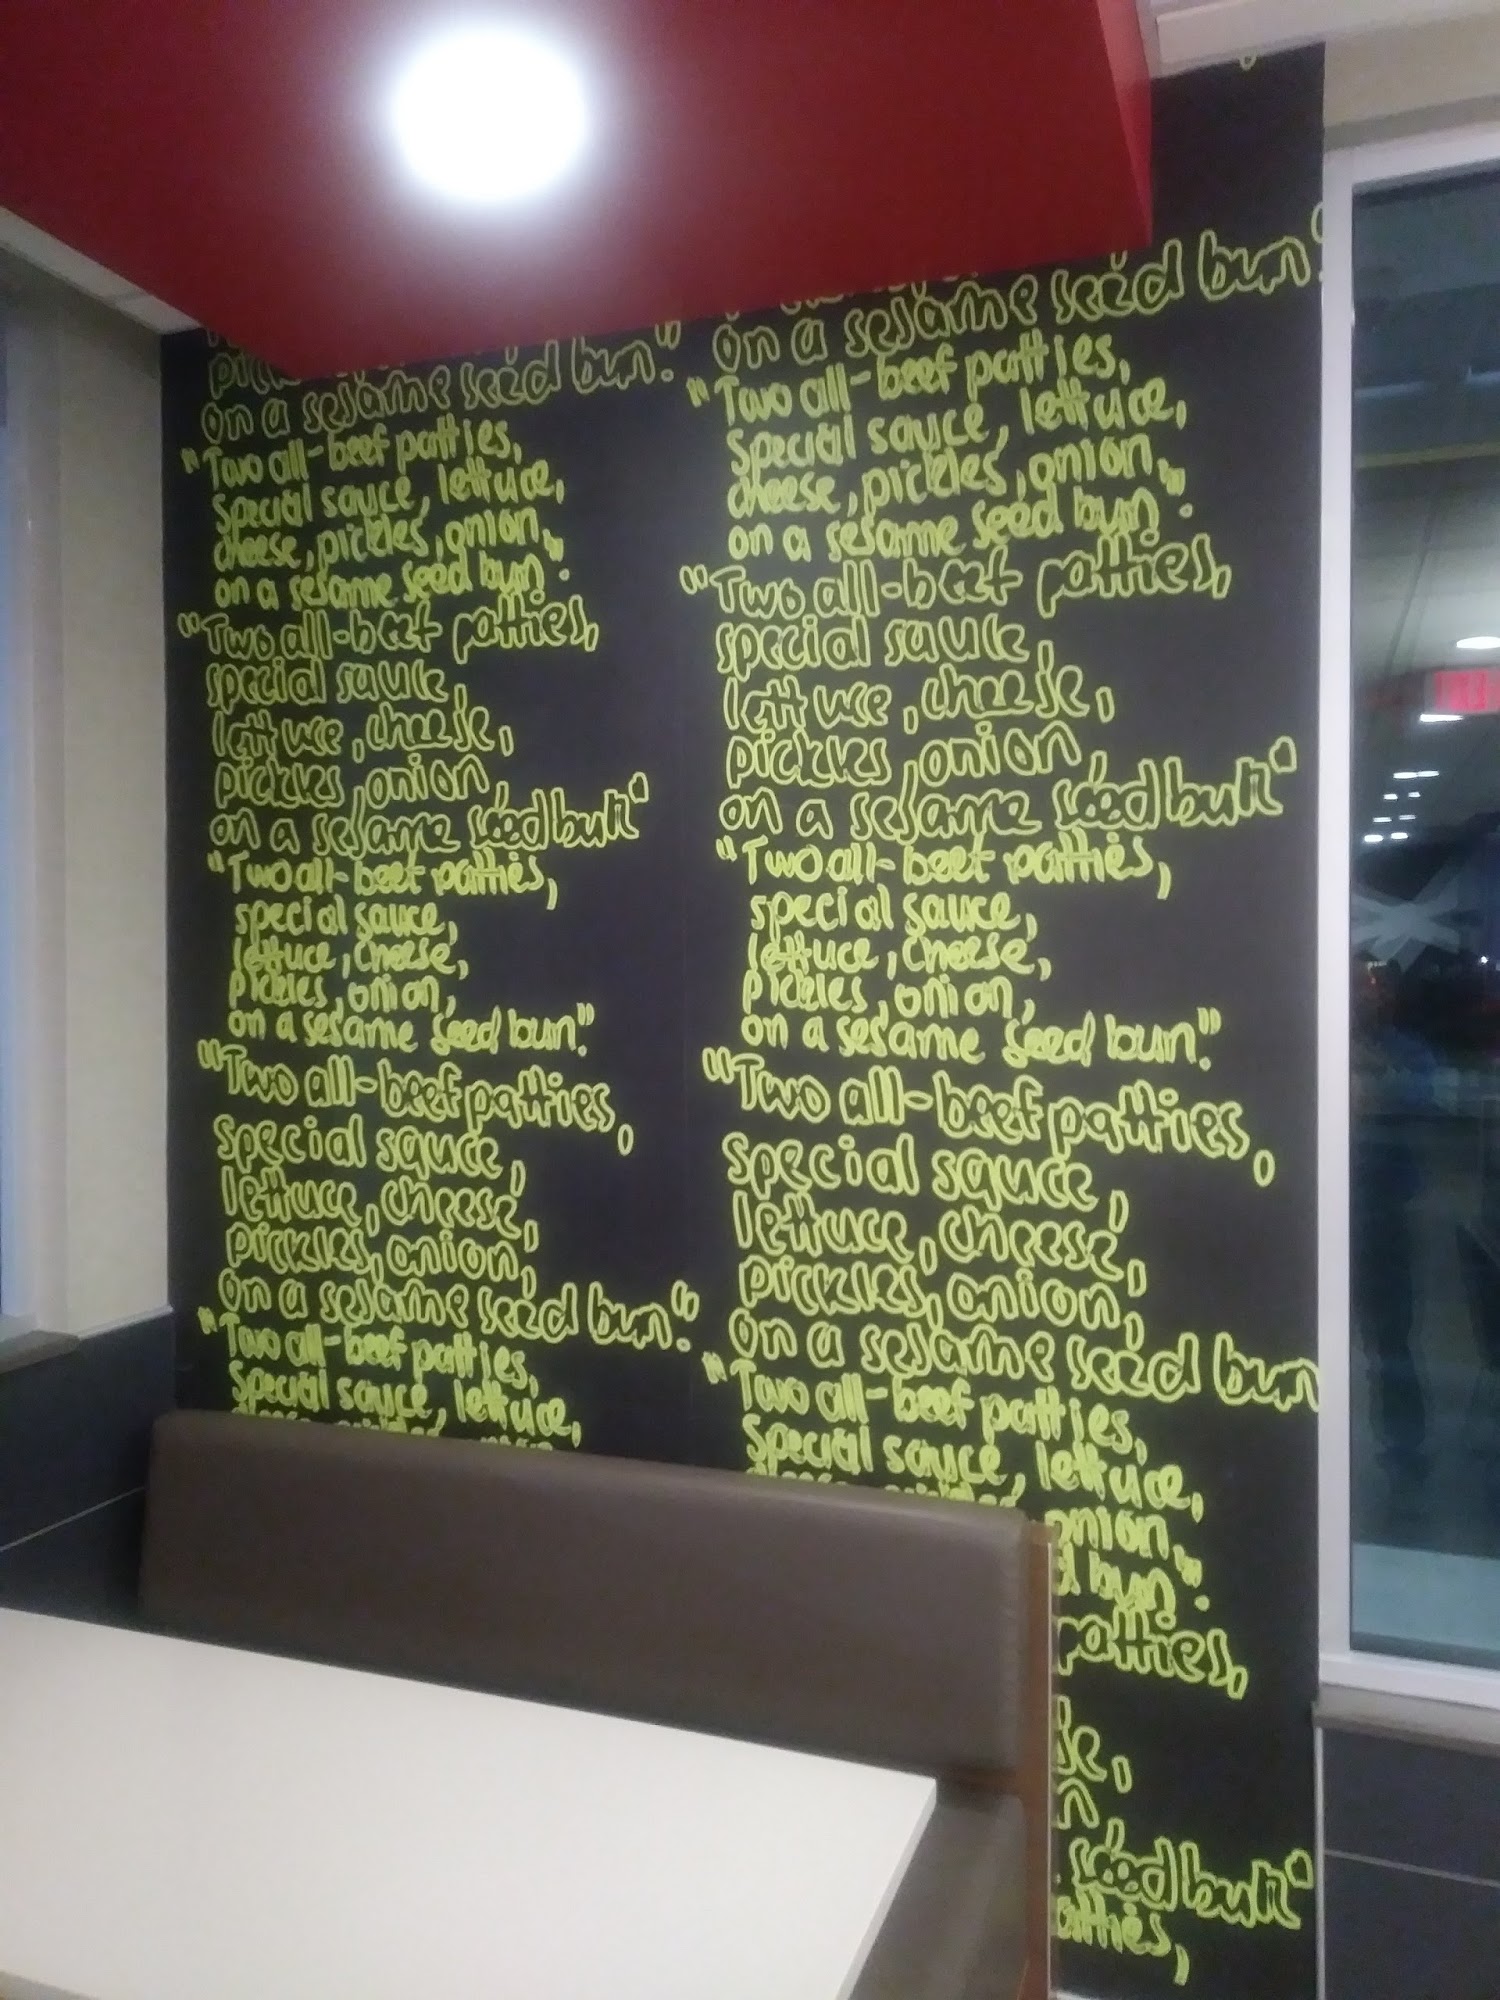 on a sesame seed bun."
"Two all-beef patties,
special sauce, lettuce,
cheese, pickles, onion,
on a sesame seed bun".
"Two all-beef patties,
special sauce,
lettuce, cheese,
pickles, onion,
on a sesame seed bun"
"Two all-beef patties,
special sauce,
lettuce, cheese,
pickles, onion,
on a sesame seed bun".
"Two all-beef patties,
special sauce,
lettuce, cheese,
pickles, onion,
on a sesame seed bun."
"Two all-beef patties,
special sauce, lettuce,
on a sesame seed bun."
"Two all-beef patties,
special sauce, lettuce,
cheese, pickles, onion,
on a sesame seed bun".
"Two all-beef patties,
special sauce,
lettuce, cheese,
pickles, onion,
on a sesame seed bun"
"Two all-beef patties,
special sauce,
lettuce, cheese,
pickles, onion,
on a sesame seed bun".
"Two all-beef patties,
special sauce,
lettuce, cheese,
pickles, onion,
on a sesame seed bun
"Two all-beef patties,
special sauce, lettuce,
onion,
bun".
patties,
seed bun"